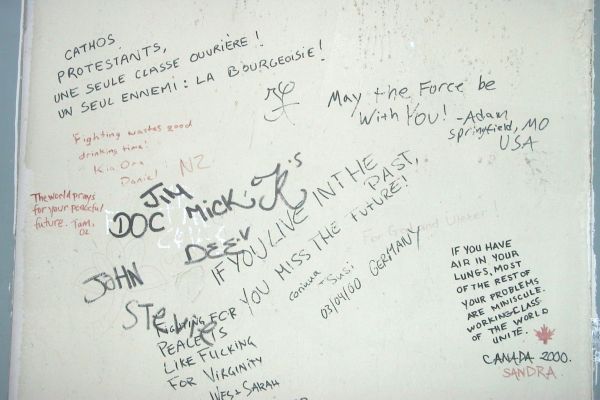 CATHOS
PROTESTANTS,
UNE SEULE CLASSE OUVRIÈRE !
UN SEUL ENNEMI : LA BOURGEOISIE !
May the Force be
With YOU! -Adam
Springfield, MO
USA
Fighting wastes good
drinking time!
Kia Ora
Daniel NZ
The world prays
for your peaceful
future. Tam.
OZ
JIM
DOC MICK. K's
DEE.V
JOHN
STEVIE
IF YOU LIVE IN THE PAST,
YOU MISS THE FUTURE!
corinna + Susi GERMANY
03/04/00
FIGHTING FOR
PEACE IS
LIKE FUCKING
FOR VIRGINITY
WES & SARAH
IF YOU HAVE
AIR IN YOUR
LUNGS, MOST
OF THE REST OF
YOUR PROBLEMS
ARE MINISCULE.
WORKING CLASS
OF THE WORLD
UNITE.
CANADA 2000.
SANDRA.